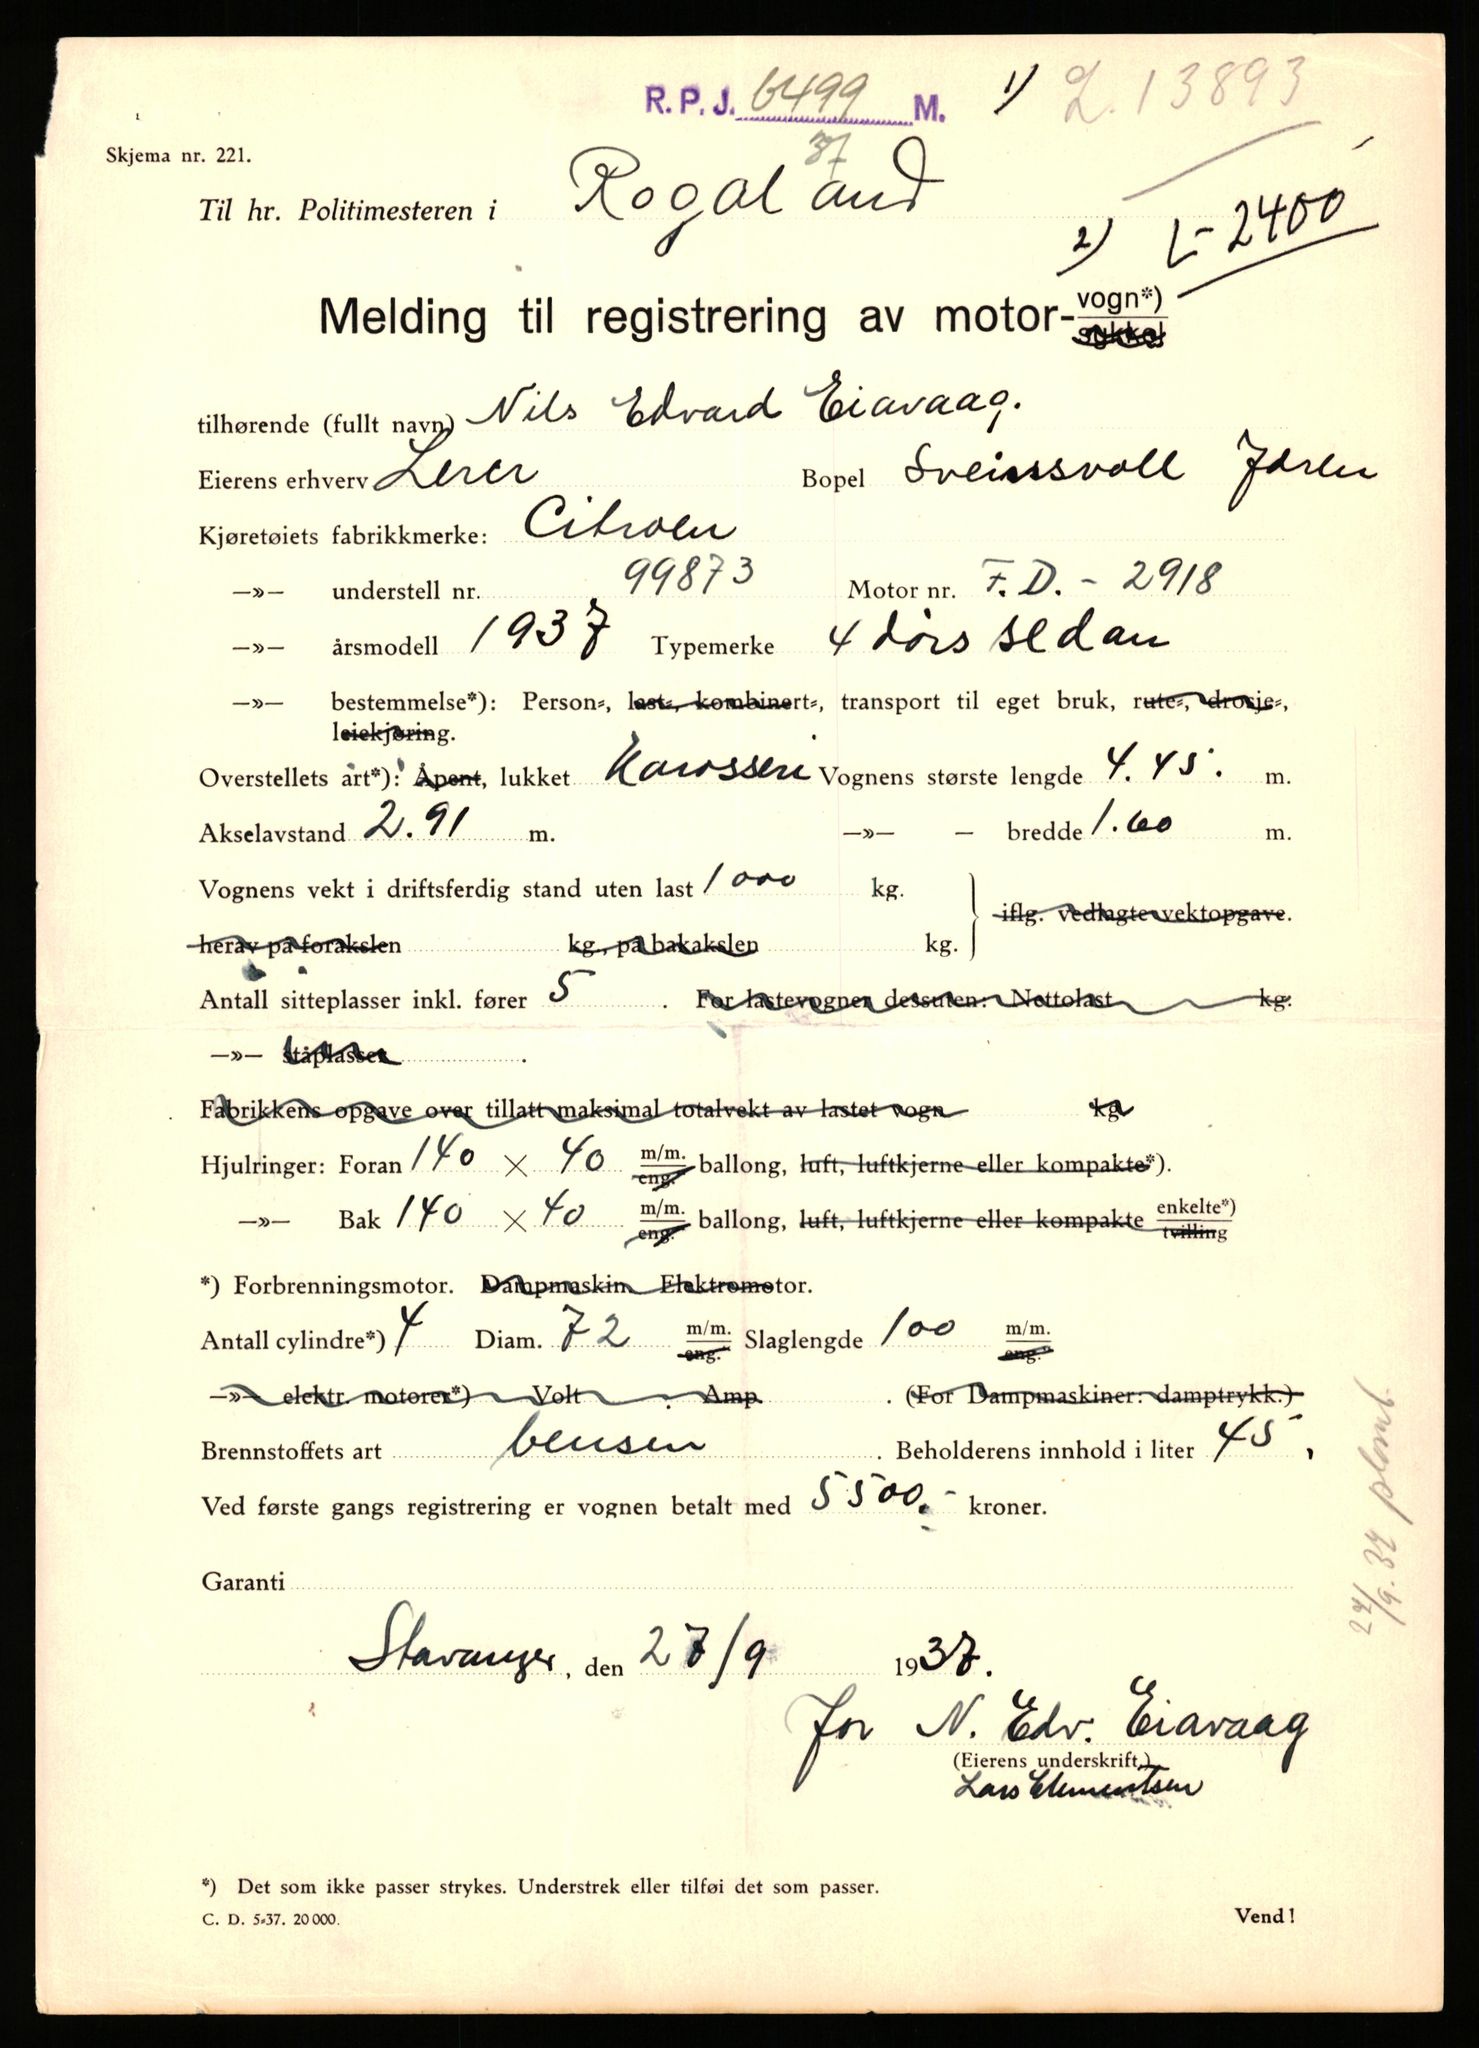 R. P. J. 6499 M. 1) L. 13893
37
Skjema nr. 221.
Til hr. Politimesteren i Rogaland
2) L-2400
Melding til registrering av motor- vogn*)
sykkel
tilhørende (fullt navn) Nils Edvard Eiavaag.
Eierens erhverv Lerer Bopel Sveinsvoll Jæren
Kjøretøiets fabrikkmerke: Citroen
—»— understell nr. 99873 Motor nr. F.D. - 2918
—»— årsmodell 1937 Typemerke 4 dørs sedan
—»— bestemmelse*): Person-, last-, kombinert-, transport til eget bruk, rute-, drosje-,
leiekjøring.
Overstellets art*): Åpent, lukket Karosseri Vognens største lengde 4.45. m.
Akselavstand 2.91 m. —»— — bredde 1.60 m.
Vognens vekt i driftsferdig stand uten last 1000 kg.
iflg. vedlagte vektopgave.
herav på forakslen kg., på bakakslen kg.
Antall sitteplasser inkl. fører 5 . For lastevogner dessuten: Nettolast kg.
—»— ståplasser .
Fabrikkens opgave over tillatt maksimal totalvekt av lastet vogn kg
Hjulringer: Foran 140 × 40 m/m. eng. ballong, luft, luftkjerne eller kompakte*).
—»— Bak 140 × 40 m/m. eng. ballong, luft, luftkjerne eller kompakte enkelte*) tvilling
*) Forbrenningsmotor. Dampmaskin. Elektromotor.
Antall cylindre*) 4 Diam. 72 m/m. eng. Slaglengde 100 m/m. eng.
—»— elektr. motorer*) Volt . Amp. . (For Dampmaskiner: damptrykk.)
Brennstoffets art bensin . Beholderens innhold i liter 45.
Ved første gangs registrering er vognen betalt med 5500.- kroner.
27/9.37 plomb.
Garanti
Stavanger, den 27/9 1937.
for N. Edv. Eiavaag
(Eierens underskrift.)
Lars Clementsen
*) Det som ikke passer strykes. Understrek eller tilføi det som passer.
C. D. 5-37. 20 000. Vend!